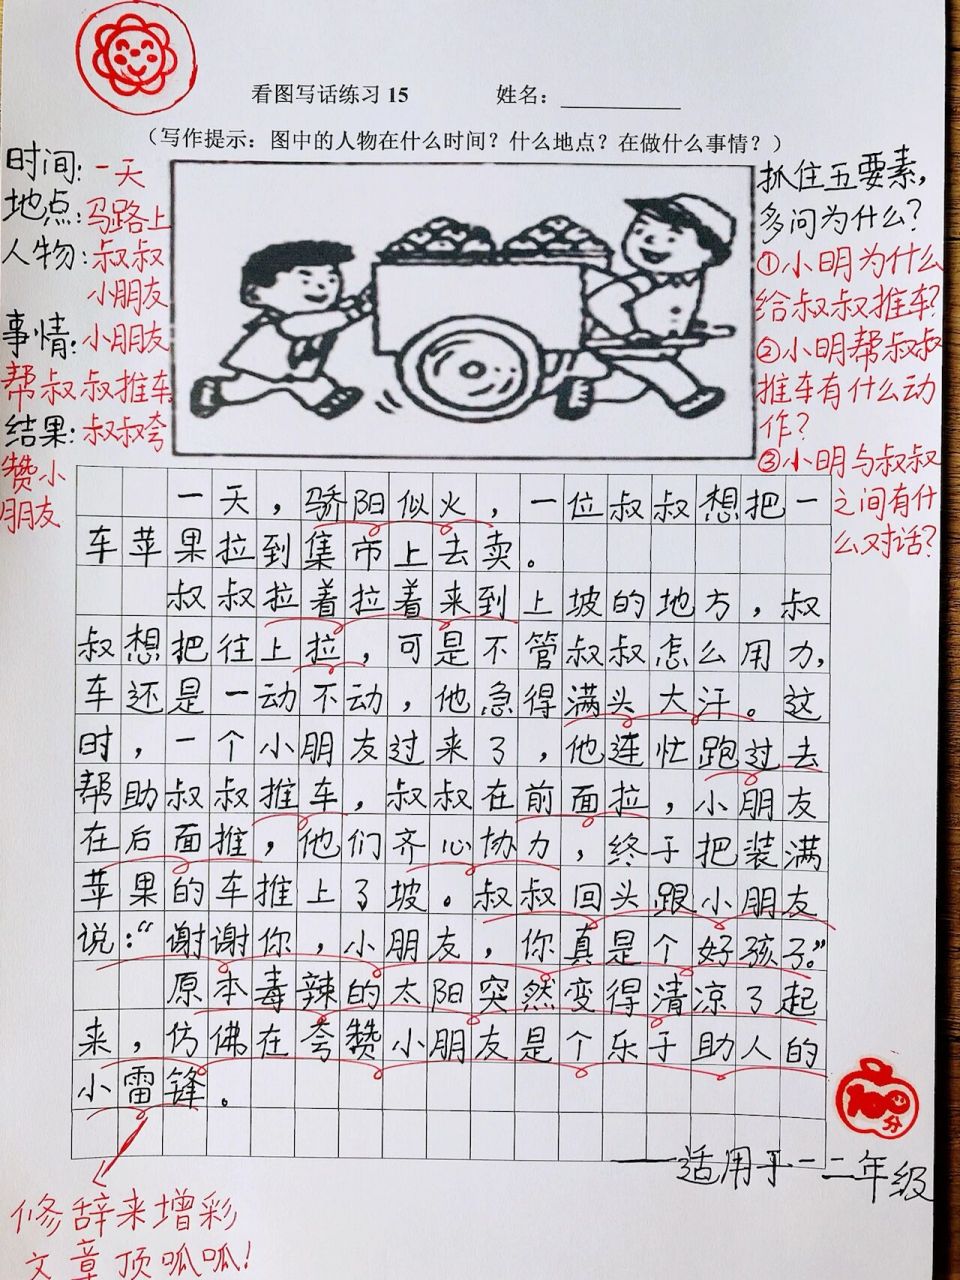 看图写话练习 15 姓名：
（写作提示：图中的人物在什么时间？什么地点？在做什么事情？）
时间：一天
地点：马路上
人物：叔叔
小朋友
事情：小朋友
帮叔叔推车
结果：叔叔夸
赞小
朋友
抓住五要素，
多问为什么？
①小明为什么
给叔叔推车？
②小明帮叔叔
推车有什么动
作？
③小明与叔叔
之间有什
么对话？
一天，骄阳似火，一位叔叔想把一
车苹果拉到集市上去卖。
叔叔拉着拉着来到上坡的地方，叔
叔想把往上拉，可是不管叔叔怎么用力，
车还是一动不动，他急得满头大汗。这
时，一个小朋友过来了，他连忙跑过去
帮助叔叔推车，叔叔在前面拉，小朋友
在后面推，他们齐心协力，终于把装满
苹果的车推上了坡。叔叔回头跟小朋友
说：“谢谢你，小朋友，你真是个好孩子。”
原本毒辣的太阳突然变得清凉了起
来，仿佛在夸赞小朋友是个乐于助人的
小雷锋。
100分
——适用于一二年级
修辞来增彩
文章顶呱呱！